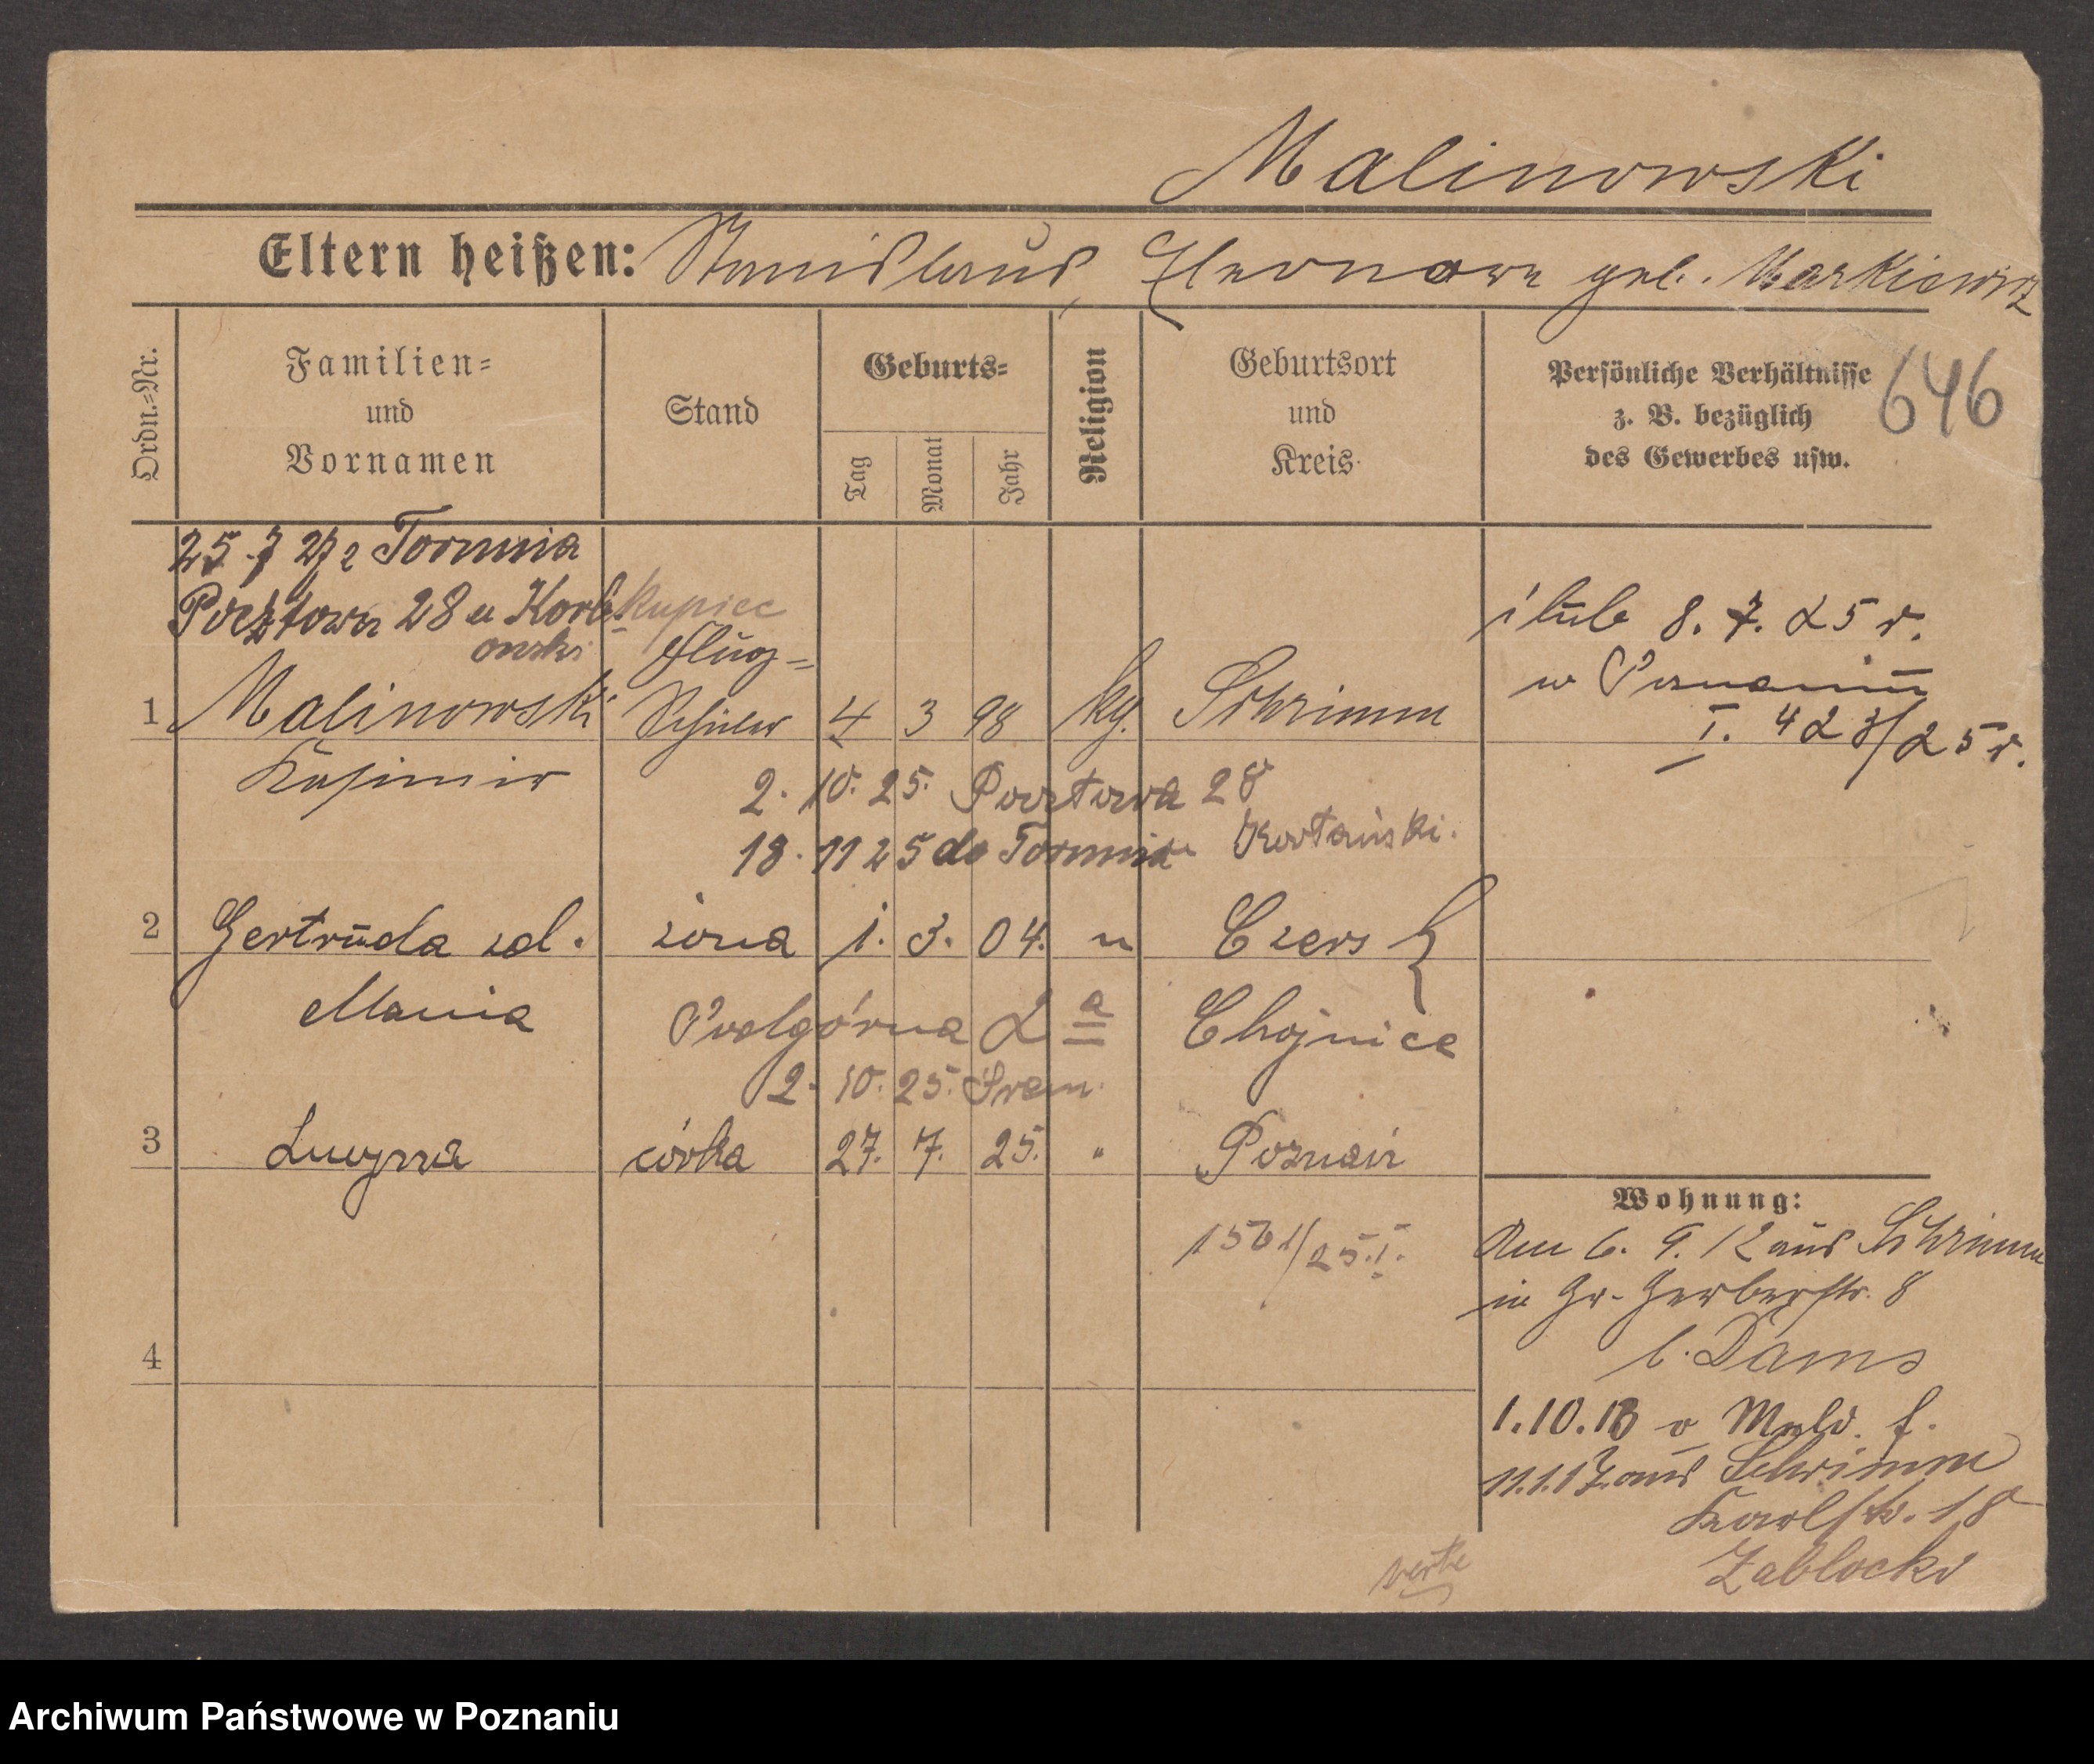 Malinowski
Eltern heißen: Stanislaus, Eleonore geb. Markiewicz
Ordn.=Nr.
Familien=
und
Vornamen
Stand
Geburts=
Tag
Monat
Jahr
Religion
Geburtsort
und
Kreis
Persönliche Verhältnisse
z. B. bezüglich
des Gewerbes usw.
646
25 7 27 z Torunia
Pocztowa 28 u
kupiec
ślub 8. 7. 25 r.
w Poznaniu
I. 423/25 r.
1 Malinowski Schüler 4 3 98 kg. Schrimm
Kasimir
2. 10. 25. Pocztowa 28
18. 11 25 do Torunia
2 Gertruda zd. żona 1. 3. 04. " Czersk
Mania
Podgórna 2 a
Chojnice
2. 10. 25. Śrem.
3 Lucyna córka 27. 7. 25. " Poznań
1561/25.I.
4
Wohnung:
Am 6. 9. 12 aus Schrimm
in Gr. Gerberstr. 8
b. Dams
1.10.13 o Meld. f.
11.1.17. aus Schrimm
Karlstr. 18
Zablocki
verte
Archiwum Państwowe w Poznaniu